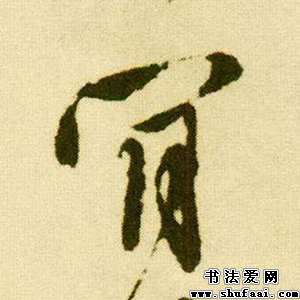 閒
书法爱网
www.shufaai.com